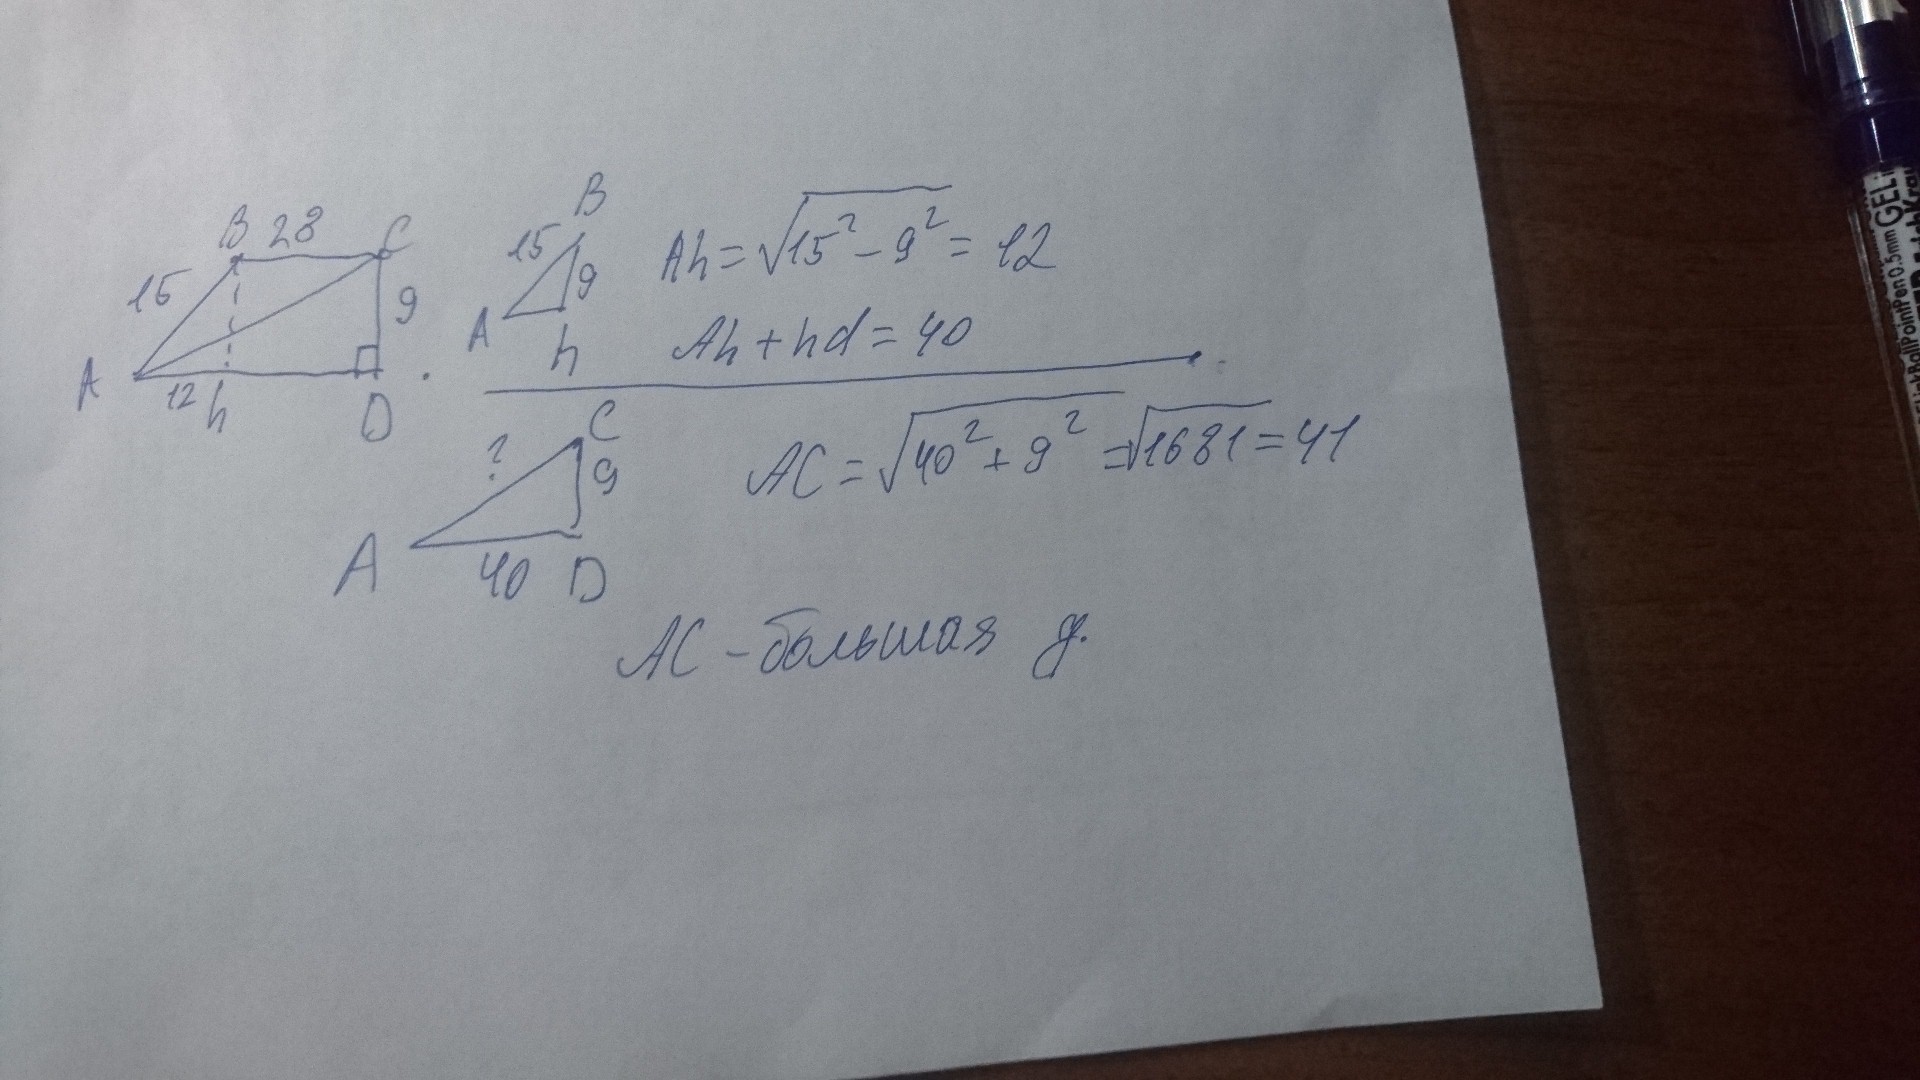 B 28 C
15
9
A 12 h D
B
15
9
A h
Ah = √15² - 9² = 12
Ah + hd = 40
C
?
9
A 40 D
AC = √40² + 9² = √1681 = 41
AC - большая д.
BallPointPen 0.5mm GEL